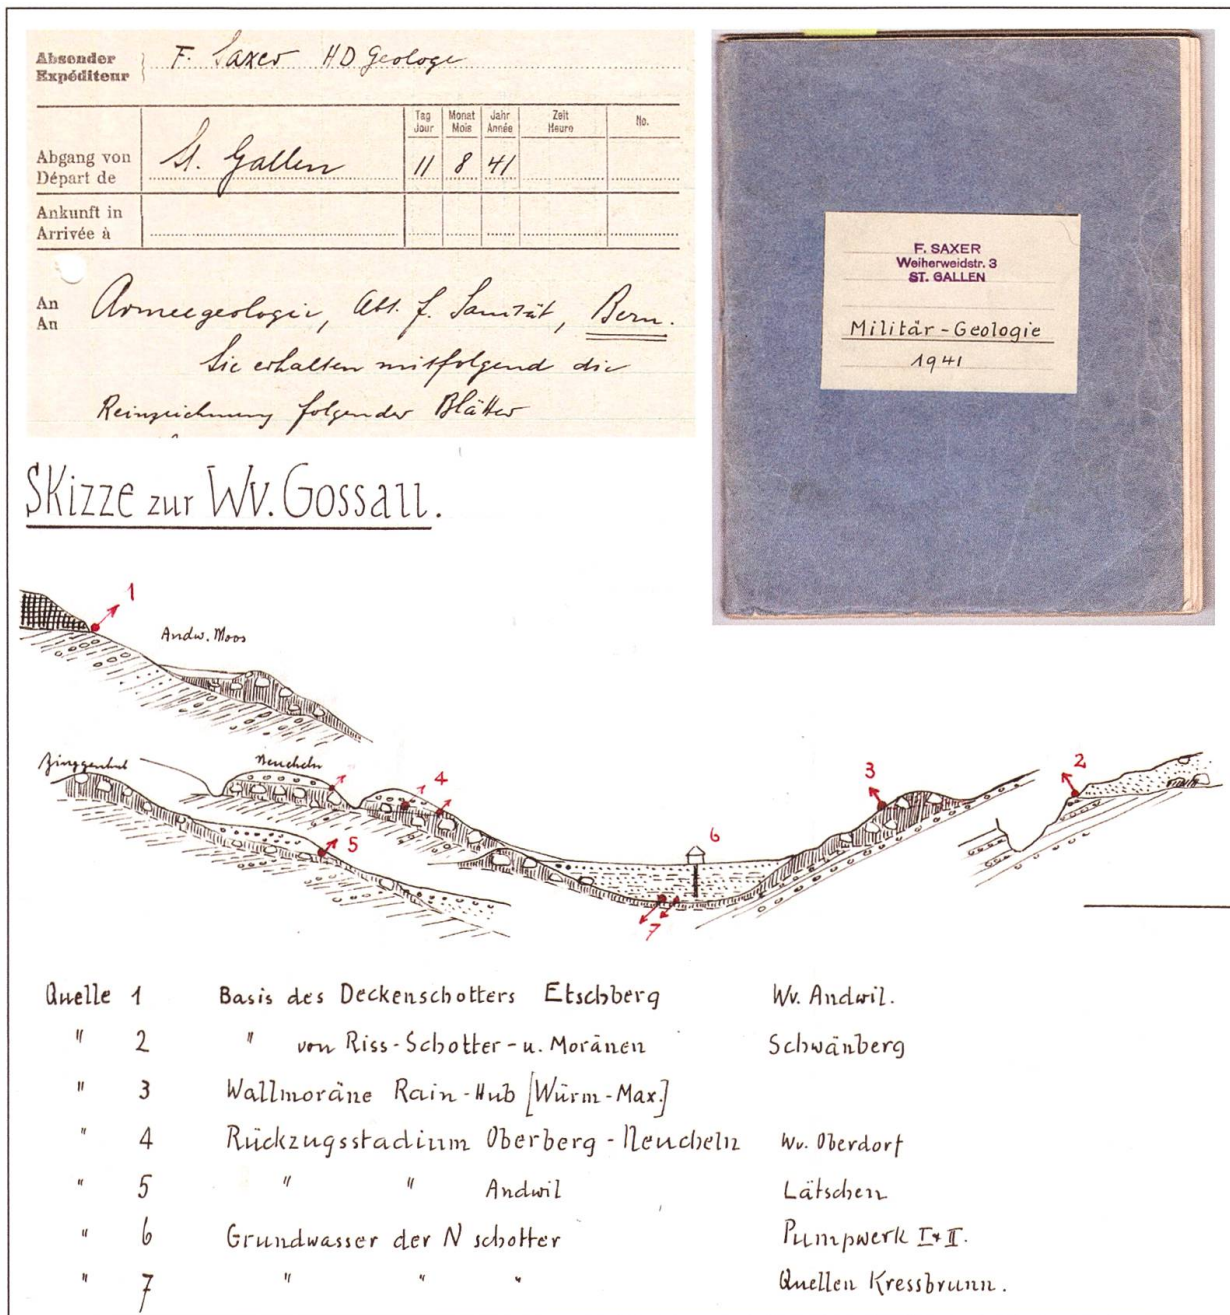 Absender
Expéditeur
F. Saxer HD Geologe
Tag
Jour
Monat
Mois
Jahr
Année
Zeit
Heure
No.
Abgang von
Départ de
St. Gallen 11 8 41
Ankunft in
Arrivée à
An
An
Armeegeologie, Abt. f. Sanität, Bern.
Sie erhalten mitfolgend die
Reinzeichnung folgender Blätter
F. SAXER
Weiherweidstr. 3
ST. GALLEN
Militär-Geologie
1941
Skizze zur Wv. Gossau.
1
Andw. Moos
Neucheln
4
5
6
7
3
2
Quelle 1 Basis des Deckenschotters Etschberg Wv. Andwil.
" 2 " von Riss-Schotter-u. Moränen Schwänberg
" 3 Wallmoräne Rain-Hub [Würm-Max.]
" 4 Rückzugsstadium Oberberg-Neucheln Wv. Oberdorf
" 5 " " Andwil Lätschen
" 6 Grundwasser der N schotter Pumpwerk I+II.
" 7 " " " Quellen Kressbrunn.